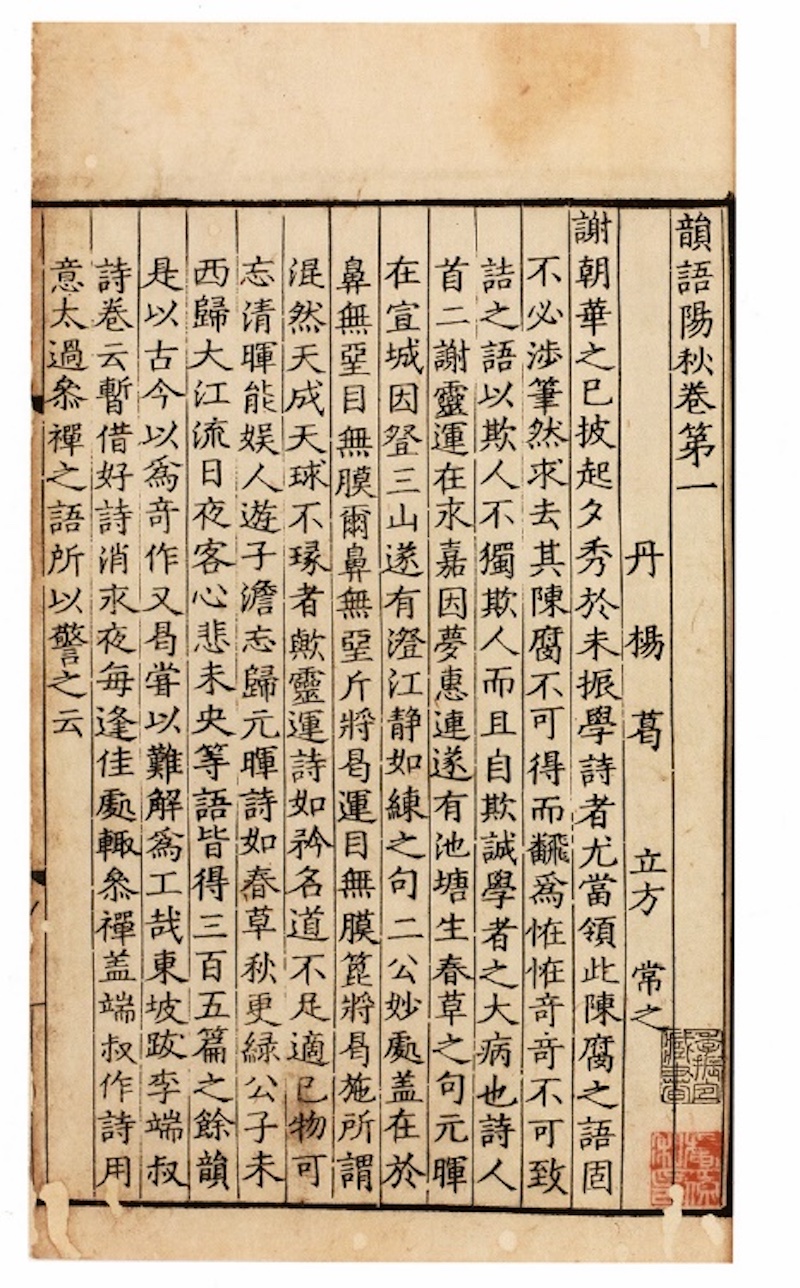 韻語陽秋卷第一
丹楊葛 立方 常之
謝朝華之已披起夕秀於未振學詩者尤當領此陳腐之語固
不必涉筆然求去其陳腐不可得而飜爲恠恠奇奇不可致
詰之語以欺人不獨欺人而且自欺誠學者之大病也詩人
首二謝靈運在永嘉因夢惠連遂有池塘生春草之句元暉
在宣城因登三山遂有澄江静如練之句二公妙處盖在於
鼻無堊目無膜爾鼻無堊斤將曷運目無膜篦將曷施所謂
混然天成天球不瑑者歟靈運詩如矜名道不足適己物可
忘清暉能娱人遊子澹忘歸元暉詩如春草秋更緑公子未
西歸大江流日夜客心悲未央等語皆得三百五篇之餘韻
是以古今以爲奇作又曷甞以難解爲工哉東坡跋李端叔
詩卷云暫借好詩消永夜每逢佳處輙叅禪盖端叔作詩用
意太過叅禪之語所以警之云